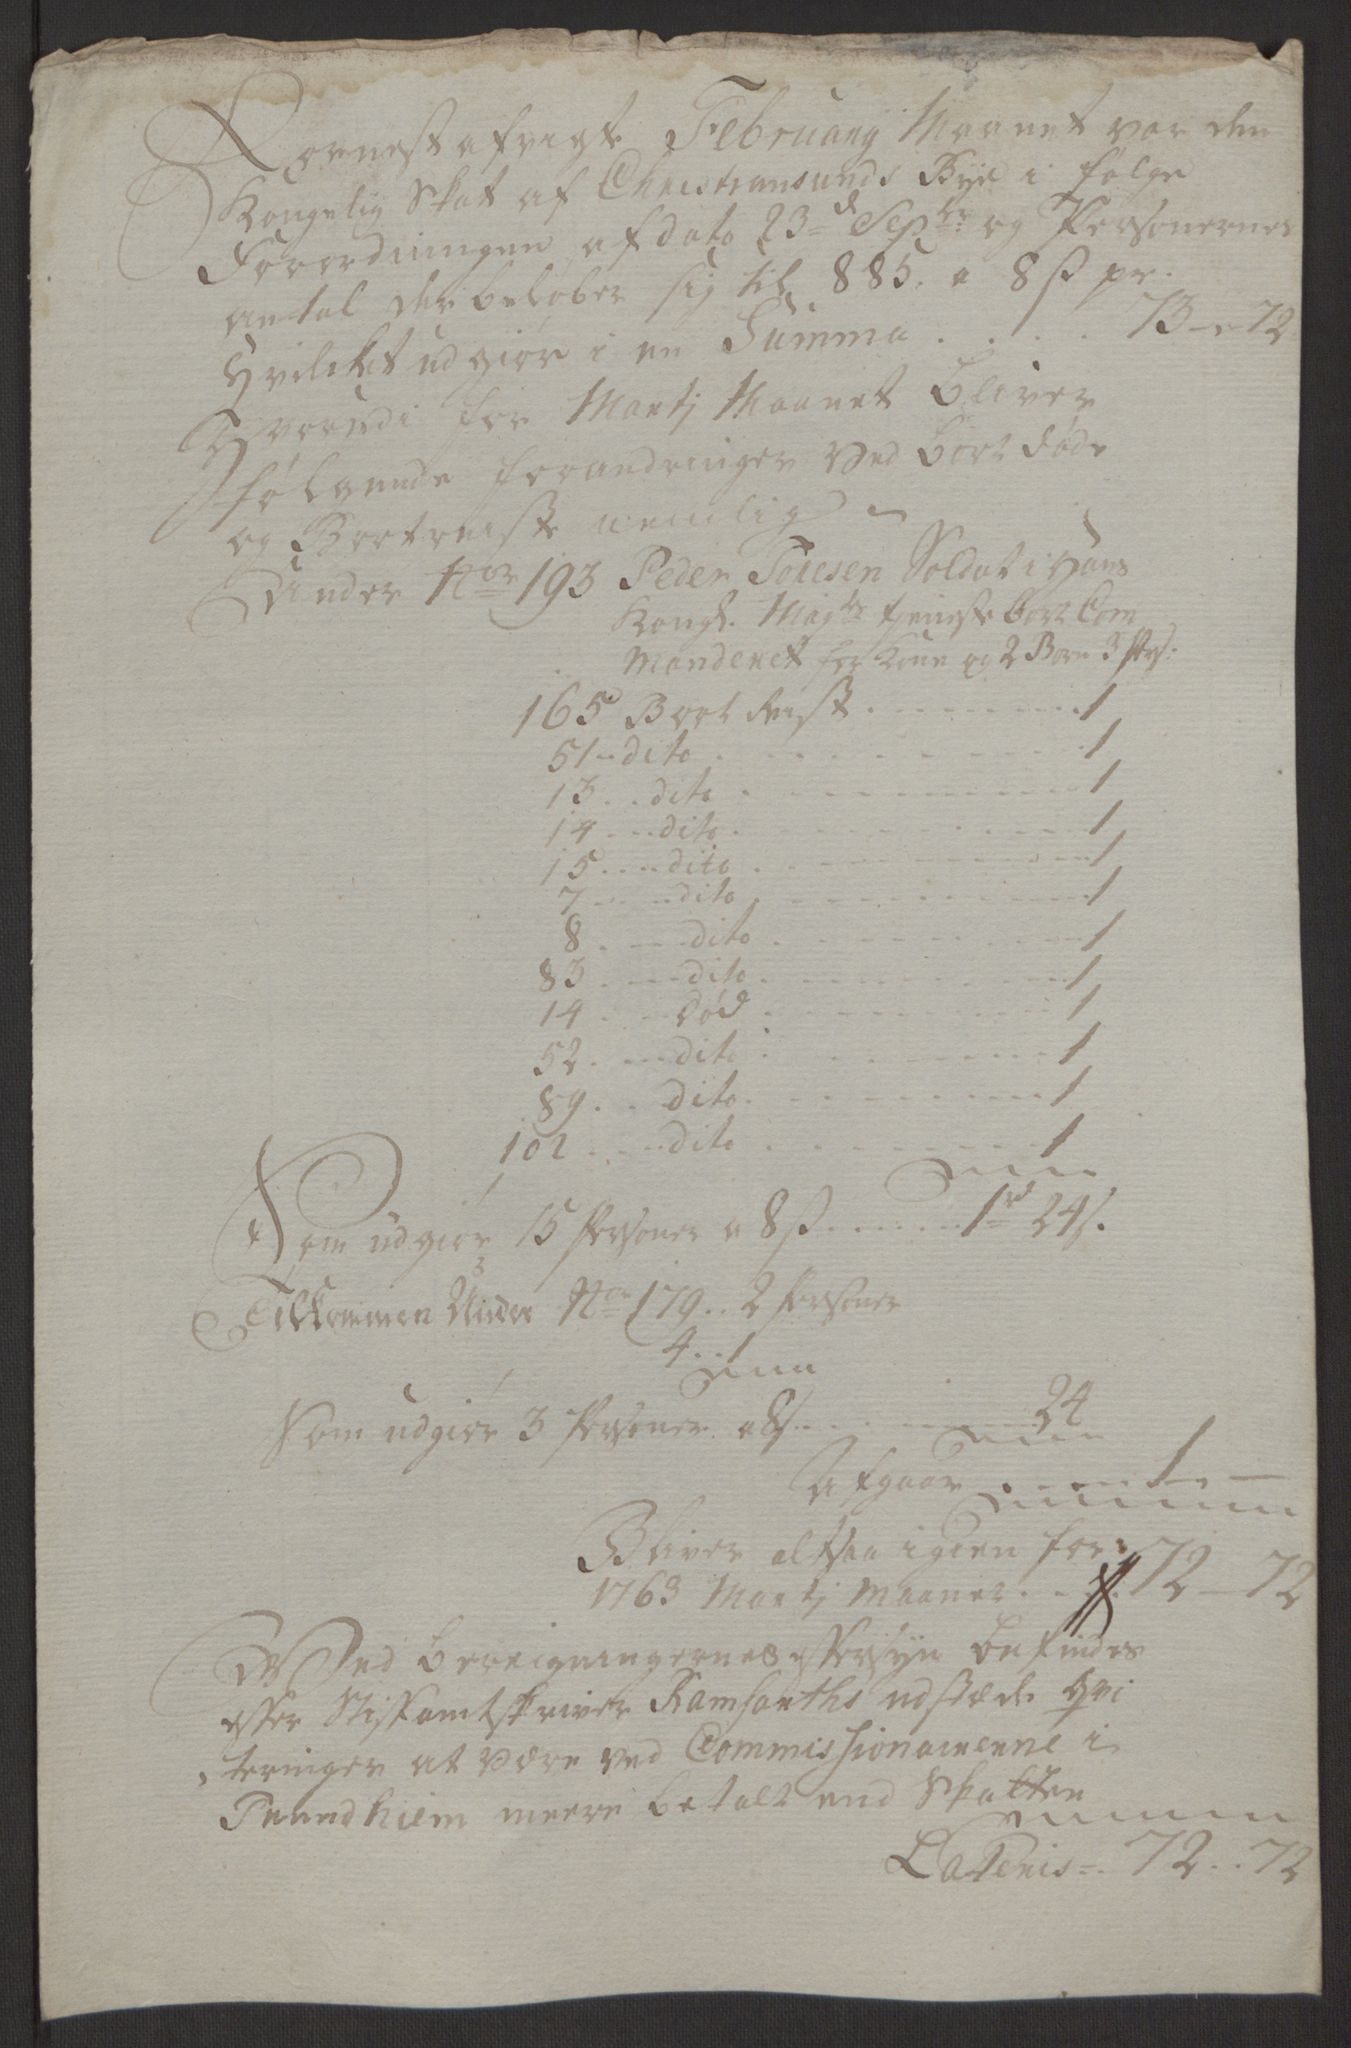 Nornest afvigte Februarij Maanet var den
Kongelig Skat af Christiansunds Bÿe i følge
Forordningen af dato 23d Sepbr: og Personernes
antal der beløber sig til 885. a 8 ß pr.
Hvilcket udgiør i en Summa . . . . 73 - " 72
Hvorudi for Martj Maanet bliver
følgende forandringer ved bort døde
og Bortreiste nemlig
Under Nor 193 Peder Toresen Soldat i Hans
Kongl. Maysts tieneste bort Com
manderet for Kone og 2 Børn 3 Prs:
165 Bort Reist . . . . . . . . 1
51 - dito . . . . . . . . 1
13 . . dito . . . . . . . . 1
14 . . . dito . . . . . . . . 1
15 . . . dito . . . . . . . . 1
7 . . . dito . . . . . . . . 1
8 . . . dito . . . . . . . . 1
83 . . . dito . . . . . . . . 1
14 . . . død . . . . . . . . 1
52 . . . dito . . . . . . . . 1
89 . . dito . . . . . . . . 1
102 . . . dito . . . . . . . . 1
Som udgiør 15 Personer a 8 ß . . . . . . 1rd 24 s.
Tilkommen Under Nor 179 . . 2 Personer
4 . . 1
Som udgiør 3 Personer a 8 s . . . . . 24
Afgaar . . . . . 1 —
Bliver altsaa igien for
1763 Martj Maanet . . . 72 — 72
Ved bereigningernes eftersÿn befindes
efter Stiftamtskriver Ramfarths udstæde Qvi
teringer at være ved Commissionairerne i
Trundhiem meere betalt end Skatten
Lateris = . 72 . . 72